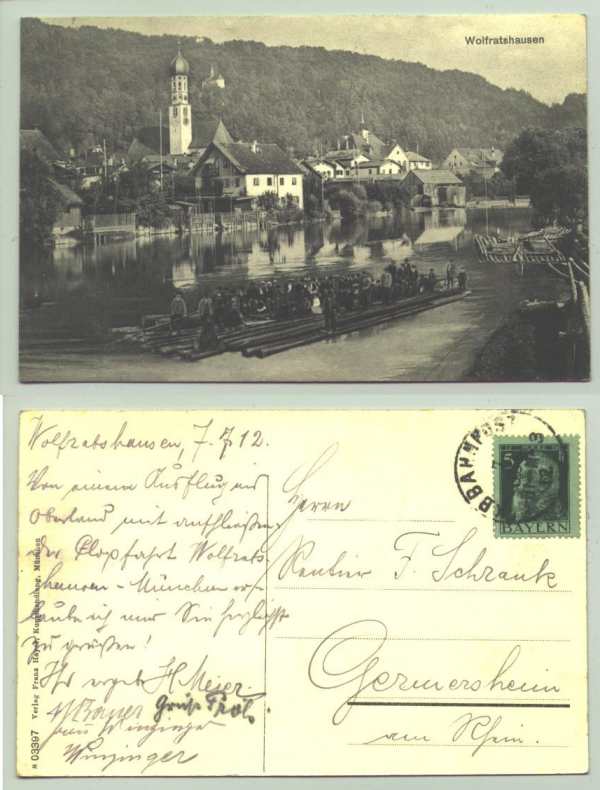 Wolfratshausen
Wolfratshausen, 7.7.12.
Von einem Ausflug ins
Oberland mit anschließen
der Flossfahrt Wolfrats
hausen - München er-
laube ich mir Sie herzlichst
zu grüßen!
Ihr ergeb. H Meier.
Bauer Gruß
Winzinger
BAHNPOST
5
BAYERN
Herrn
Rentier F. Schrank
Germersheim
am Rhein.
Verlag Franz Heydt, Kunsthandlung, München
N 03397